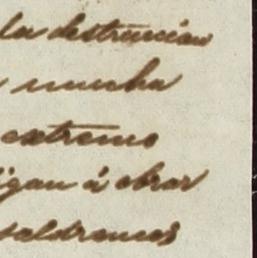 la destruccion
mucha
extremo
igan á obrar
saldremos